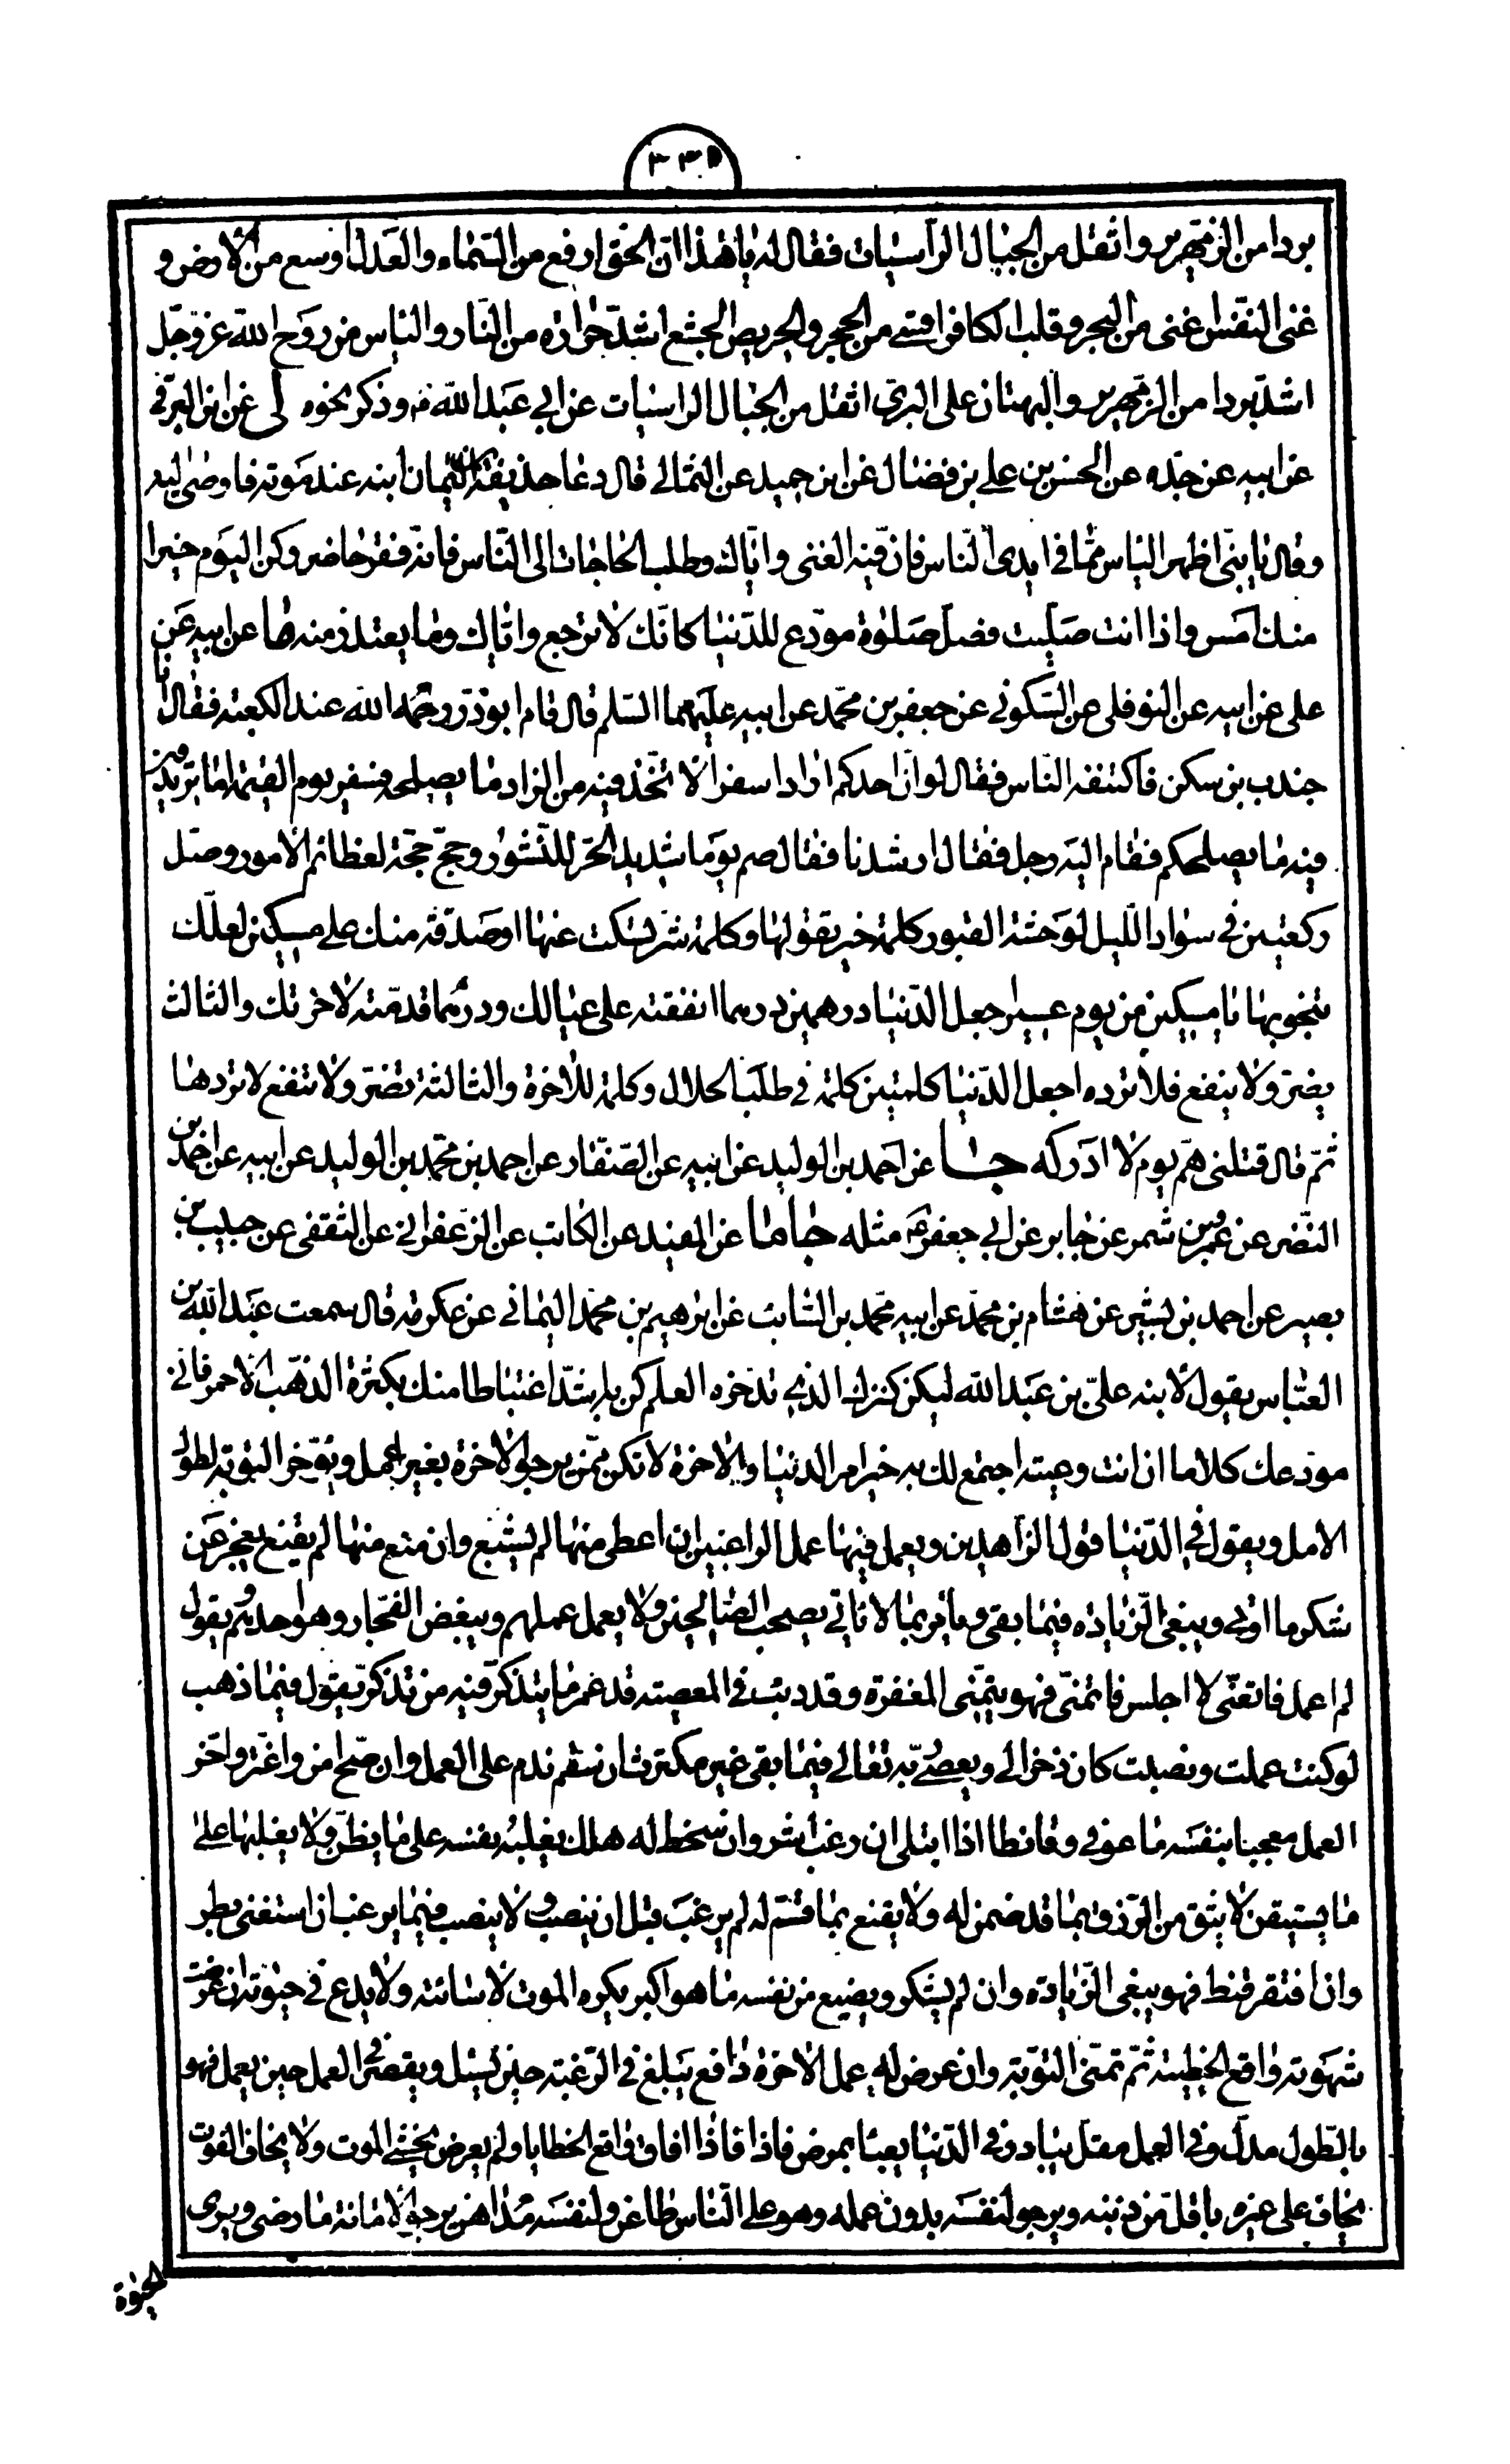 ٣٣٥
بردا من الزمهرير واثقل من الجبال الراسيات فقال له يا هذا ان الحق ارفع من السماء والعدل اوسع من الارض و
غنى النفس اغنى من البحر وقلب الكافر اقسى من الحجر والحريص الجشع اشدّ حرارة من النار والياس من روح الله عزوجلّ
اشدّ بردا من الزمهرير والبهتان على البرئ اثقل من الجبال الراسيات عن ابي عبد الله ع وذكر نحوه لى عن ابن البرقي
عن ابيه عن جدّه عن الحسن بن علي بن فضال عن ابن حميد عن الثمالي قال دعا حذيفة بن اليمان ابنه عند موته فاوصى اليه
وقال يا بنيّ اظهر الياس ممّا في ايدى الناس فان فيه الغنى وايّاك وطلب الحاجات الى النّاس فانّه فقر حاضر وكن اليوم خيرا
منك امس واذا انت صلّيت فصلّ صلوة مودّع للدّنيا كانّك لا ترجع وايّاك وما يعتذر منه ما عن ابيه عن
على عن ابيه عن النوفلى عن السكوني عن جعفر بن محمّد عن ابيه عليهما السّلم قال قام ابوذرّ رحمه الله عند الكعبة فقال انا
جندب بن سكن فاكتنفه النّاس فقال لو انّ احدكم اراد سفرا لاتّخذ فيه من الزاد ما يصلحه فسفر يوم القيمة اما تريدون
فيه ما يصلحكم فقام اليه رجل فقال ارشدنا فقال صم يوما شديد الحرّ للنّشور وحجّ حجّة لعظائم الامور وصلّ
ركعتين في سواد اللّيل لوحشة القبور كلمة خير تقولها وكلمة شرّ تسكت عنها او صدقة منك على مسكين لعلّك
تنجو بها يا مسكين من يوم عسير اجعل الدّنيا درهمين درهما انفقته على عيالك ودرهما قدمته لاخرتك والثالث
يضرّ ولا ينفع فلا ترده اجعل الدّنيا كلمتين كلمة في طلب الحلال وكلمة للاخرة والثالثة تضرّ ولا تنفع لا تردها
ثمّ قال قتلنى همّ يوم لا ادركه جا عن احمد بن الوليد عن ابيه عن الصّفّار عن احمد بن محمّد بن الوليد عن ابيه عن احمد بن
النّضر عن عمرو بن شمر عن جابر عن ابي جعفر ع مثله جا ما عن المفيد عن الكاتب عن الزّعفراني عن الثقفى عن حبيب بن
بصير عن احمد بن بشير عن هشام بن محمّد عن ابيه محمّد بن السّائب عن ابرهيم بن محمّد اليماني عن عكرمة قال سمعت عبد الله بن
العبّاس يقول لابنه عليّ بن عبد الله ليكن كنزك الذي تدّخره العلم كن به اشدّ اغتباطا منك بكثرة الذّهب الاحمر فاني
مودعك كلاما ان انت وعيته اجتمع لك به خير امر الدنيا والاخرة لا تكن ممّن يرجو الاخرة بغير عمل ويؤخر التوبة لطول
الامل ويقول في الدّنيا قول الزاهدين ويعمل فيها عمل الراغبين ان اعطى منها لم يشبع وان منع منها لم يقنع يعجز عن
شكر ما اوتي ويبغي الزيادة فيما بقي ويامر بما لا ياتي يحب الصالحين ولا يعمل عملهم ويبغض الفجّار وهو احدهم يقول
لم اعمل فاتعنّى لا اجلس فاتمنّى فهو يتمنّى المغفرة وقد دئب في المعصية قد عمر ما يتذكّر فيه من تذكّر يقول فيما ذهب
لو كنت عملت ونصبت كان ذخرا لي ويعصي ربّه تعالى فيما بقى غير مكترث ان سقم ندم على العمل وان صحّ امن واغترّ واخّر
العمل معجبا بنفسه ما عوفي وقانطا اذا ابتلى ان رغب اشر وان سخط له هلك تغلبه نفسه على ما يظنّ ولا يغلبها على
ما يستيقن لا يثق من الرّزق بما قد ضمن له ولا يقنع بما قسّم له لم يرغب قبل ان ينصب ولا ينصب فيما يرغب ان استغنى بطر
وان افتقر قنط فهو يبغي الزّيادة وان لم يشكر ويضيع من نفسه ما هو اكبر يكره الموت لاسائته ولا يدع في حيوته ان عرضت
شهوته واقع الخطيئة ثمّ تمنّى التوبة وان عرض له عمل الاخرة دافع يبلغ في الرّغبة حين يسئل ويقصر في العمل حين يعمل فهو
بالطّول مدلّ وفي العمل مقلّ يبادر في الدّنيا يعبا بمرض فاذا افاق واقع الخطايا ولم يعرض يخشى الموت ولا يخاف الفوت
يخاف على غيره باقلّ من ذنبه ويرجو لنفسه بدون عمله وهو على النّاس طاعن ولنفسه مداهن يرجو الامانة ما رضى ويرى
الحيوة